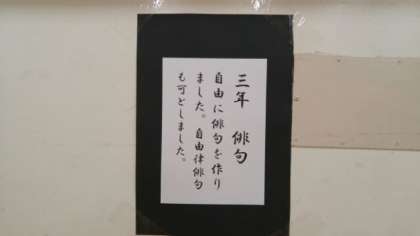 三年 俳句
自由に俳句を作り
ました。自由律俳句
も可どしました。